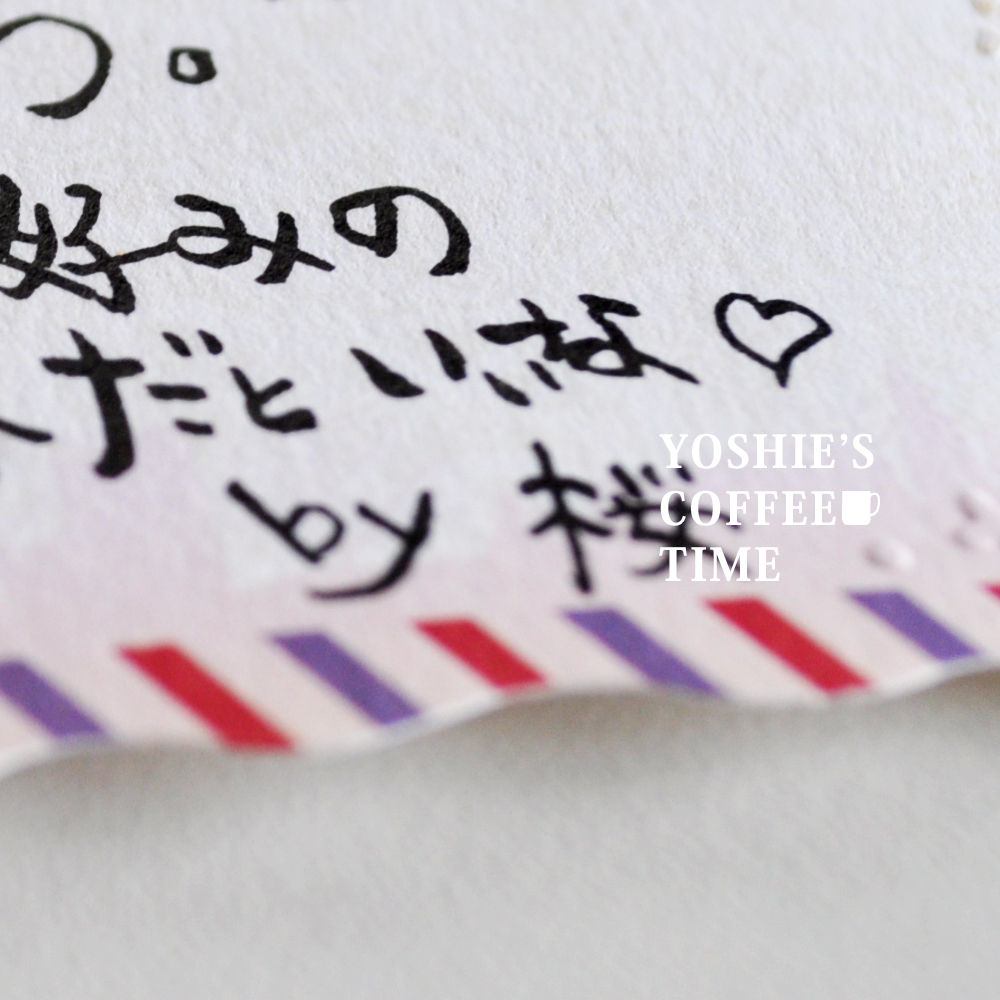 つ。
好みの
だといいな♡
by 桜
YOSHIE'S
COFFEE
TIME